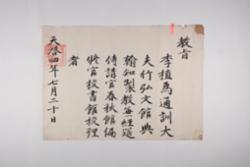 教旨
李植爲通訓大
夫行弘文館典
翰知製教兼經筵
侍講官春秋館編
修官校書館校理
者
天啓四年七月二十日